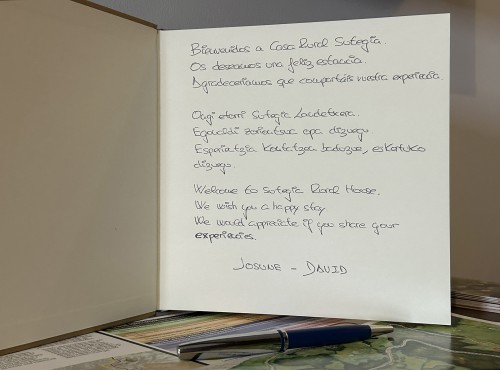 Bienvenidos a Casa Rural Sutegia.
Os deseamos una feliz estancia.
Agradeceríamos que compartáis vuestra experiencia.
Ongi etorri Sutegia Landetxera.
Egonaldi zoriontsua opa dizuegu.
Esperientzia kontatzea baduzue, eskertuko
dizuegu.
Welcome to Sutegia Rural House.
We wish you a happy stay
We would appreciate if you share your
experiencies.
JOSUNE - DAVID